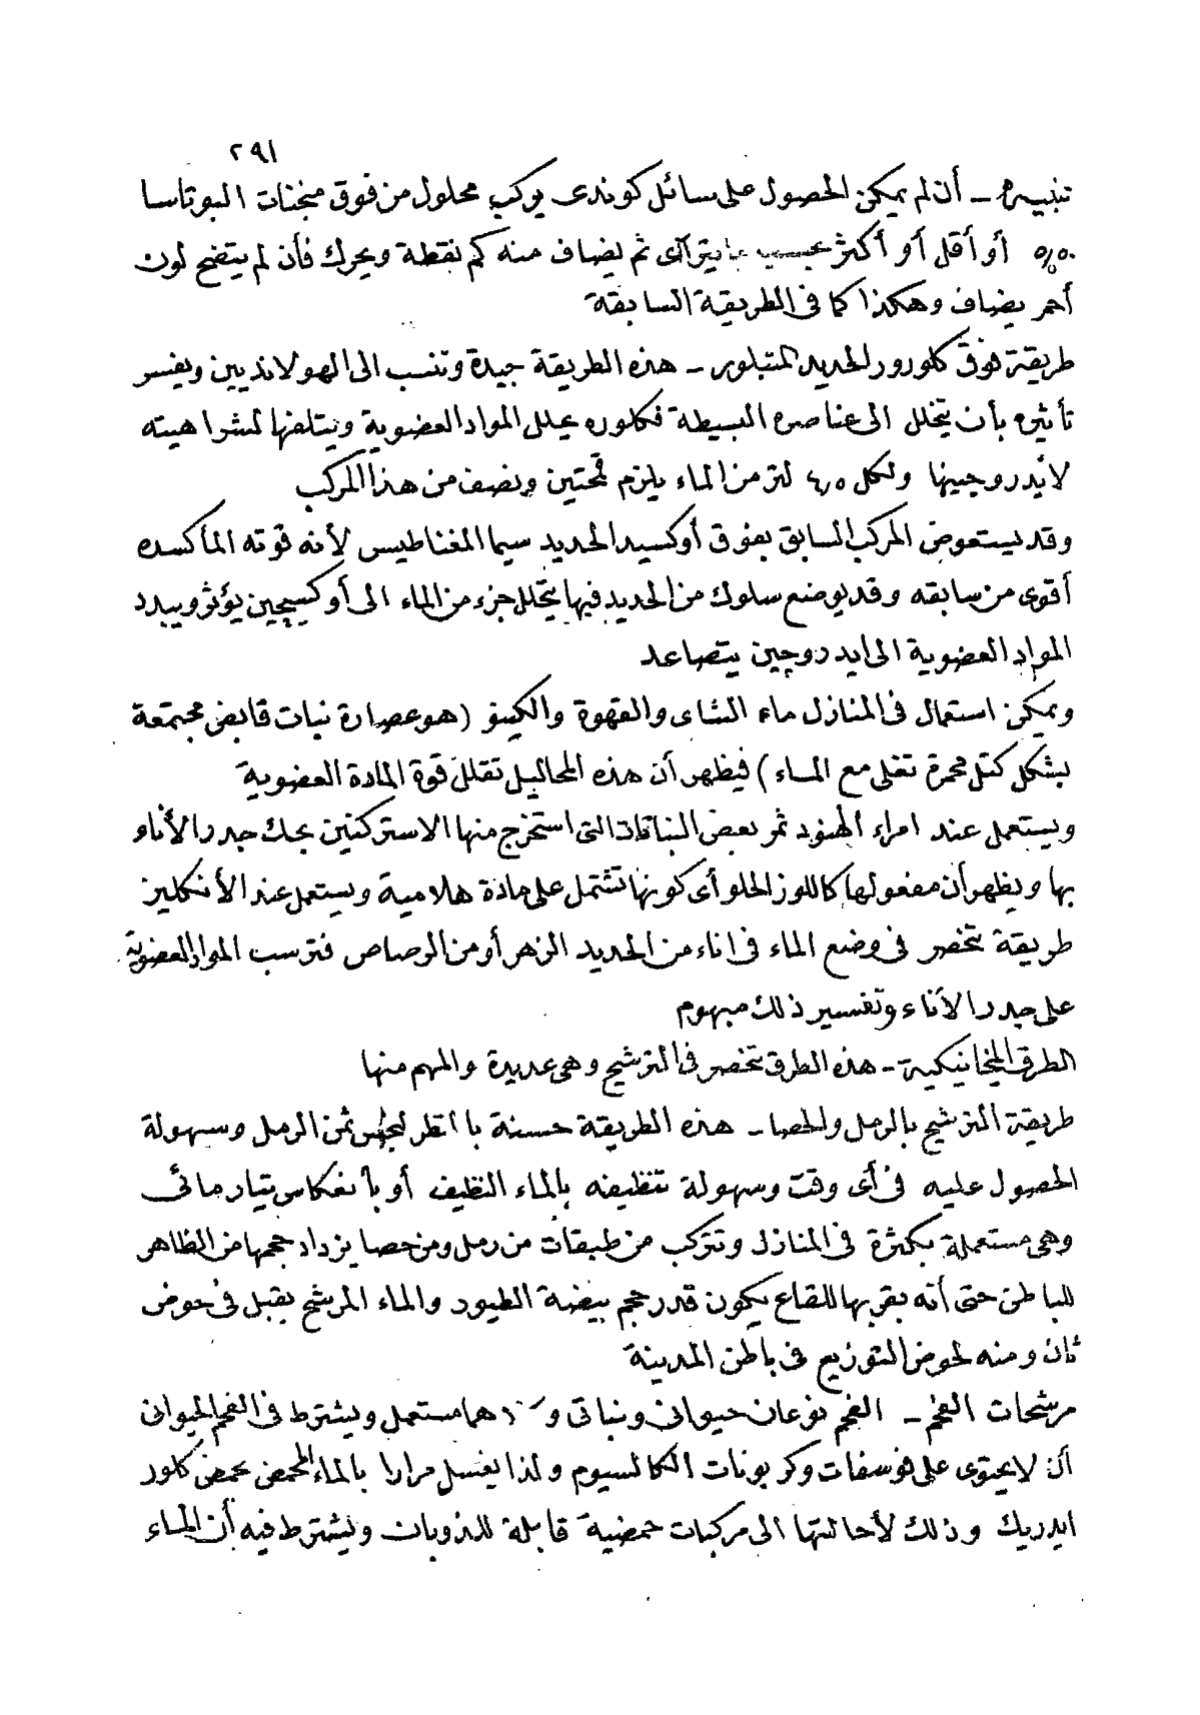 ٢٩١
تنبيه - أن لم يمكن الحصول على سائل كوندى يركب محلول من فوق منجنات البوتاسا
أو أقل أو أكثر بحسب ما يتراآى ثم يضاف منه كم نقطة ويحرك فأن لم يتضح لون
أحمر يضاف وهكذا كما فى الطريقة السابقة
طريقة فوق كلورور الحديد المتبلور - هذه الطريقة جيدة وتنسب الى الهولانديين ويفسر
تأثيره بأن يتحلل الى عناصره البسيطة فكلوره يحلل المواد العضوية ويتلفها لشراهيته
لأيدروجينها ولكل ٤٫٥ لتر من الماء يلزم قمحتين ونصف من هذا المركب
وقد يستعوض المركب السابق بفوق أوكسيد الحديد سيما المغناطيس لأنه قوته المأكسده
أقوى من سابقه وقد يوضع سلوك من الحديد فيها يتحلل جزء من الماء الى أوكسيجين يؤثر ويبدد
المواد العضوية الى ايدروجين يتصاعد
ويمكن استعمال فى المنازل ماء الشاى والقهوة والكينو (هو عصارة نبات قابض مجتمعة
بشكل كتل محمرة تغلى مع الماء) فيظهر أن هذه المحاليل تقلل قوة المادة العضوية
ويستعمل عند امراء الهنود ثمر بعض النباتات التى استخرج منها الاستركنين بحك جدر الأناء
بها ويظهر أن مفعولها كاللوز الحلو أى كونها تشتمل على مادة هلامية ويستعمل عند الأنكليز
طريقة تنحصر فى وضع الماء فى اناء من الحديد الزهر أو من الرصاص فترسب المواد العضوية
على جدر الأناء وتفسير ذلك مبهوم
الطرق الميخانيكية - هذه الطرق تنحصر فى الترشيح وهى عديدة والمهم منها
طريقة الترشيح بالرمل والحصا - هذه الطريقة حسنة بالنظر لبخس ثمن الرمل وسهولة
الحصول عليه فى أى وقت وسهولة تنظيفه بالماء النظيف أو بأنعكاس تيار مائى
وهى مستعملة بكثرة فى المنازل وتتركب من طبقات من رمل ومن حصا يزداد حجمها من الظاهر
للباطن حتى أنه بقربها للقاع يكون قدر حجم بيضة الطيور والماء المرشح يقبل فى حوض
ثان ومنه لحوض التوزيع فى باطن المدينة
مرشحات الفحم - الفحم نوعان حيوانى ونباتى و هما مستعمل ويشترط فى الفحم الحيوانى
أن لا يحتوى على فوسفات وكربونات الكالسيوم ولذا يغسل مرارا بالماء المحمض بحمض كلور
ايدريك وذلك لأحالتها الى مركبات حمضية قابلة للذوبان ويشترط فيه أن الماء